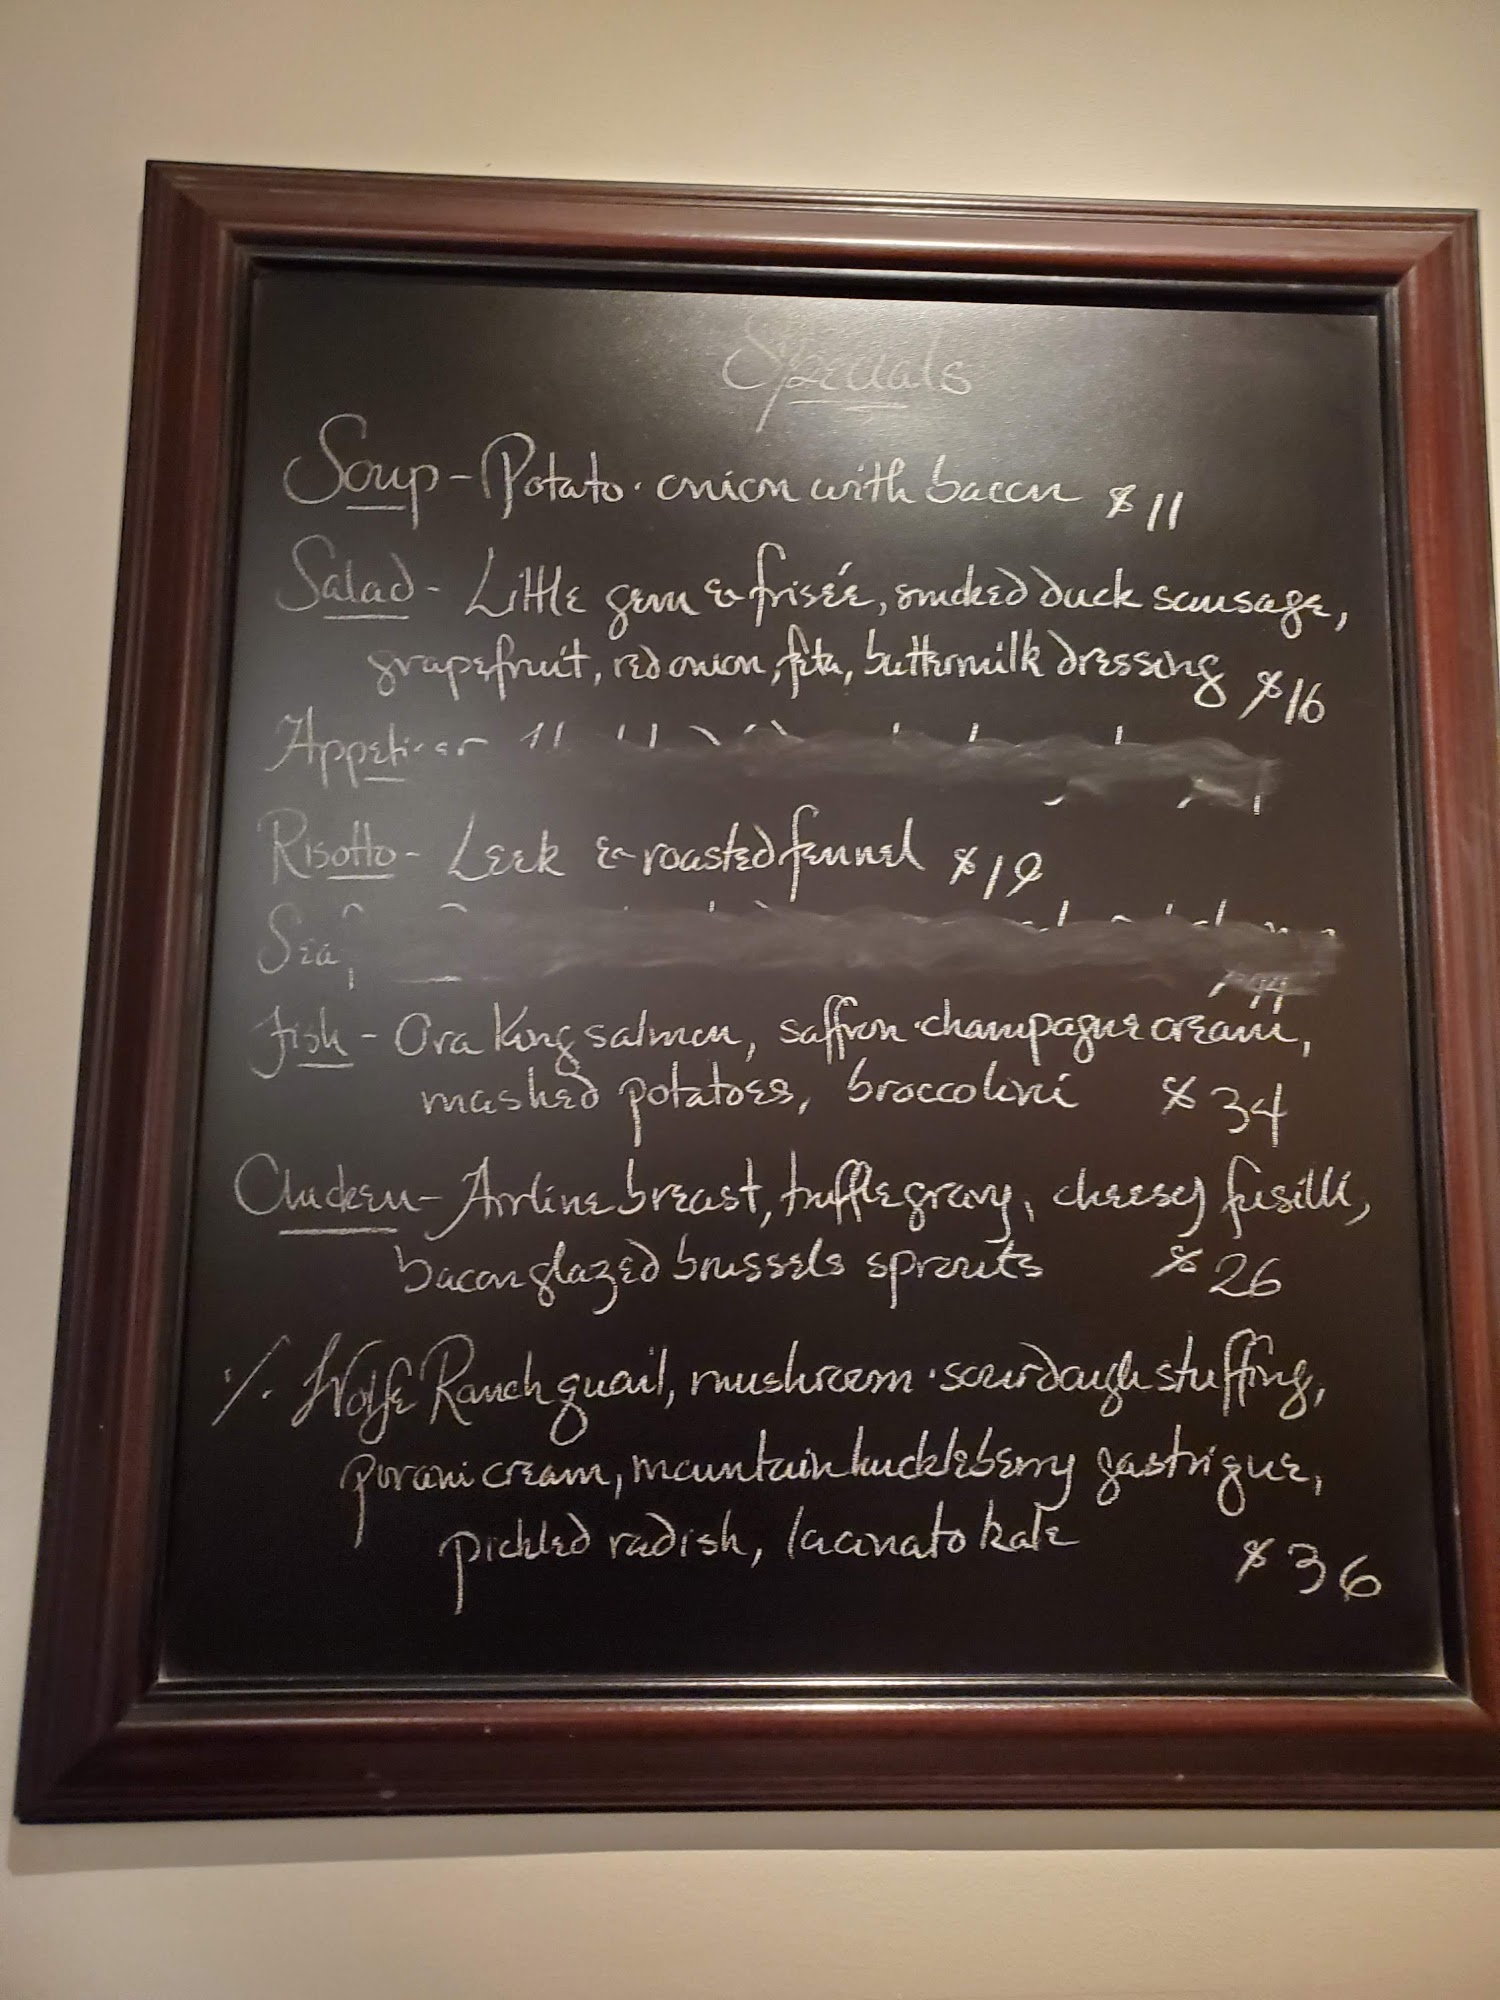 Specials
Soup - Potato · onion with bacon $11
Salad - Little gem & frisée, smoked duck sausage,
grapefruit, red onion, feta, buttermilk dressing $16
Appetizer
Risotto - Leek & roasted fennel $19
Sea
Fish - Ora King salmon, saffron · champagne cream,
mashed potatoes, broccolini $34
Chicken - Airline breast, truffle gravy, cheesy fusilli,
bacon glazed brussels sprouts $26
%. Wolfe Ranch quail, mushroom · sourdough stuffing,
porcini cream, mountain huckleberry gastrique,
pickled radish, lacinato kale $36